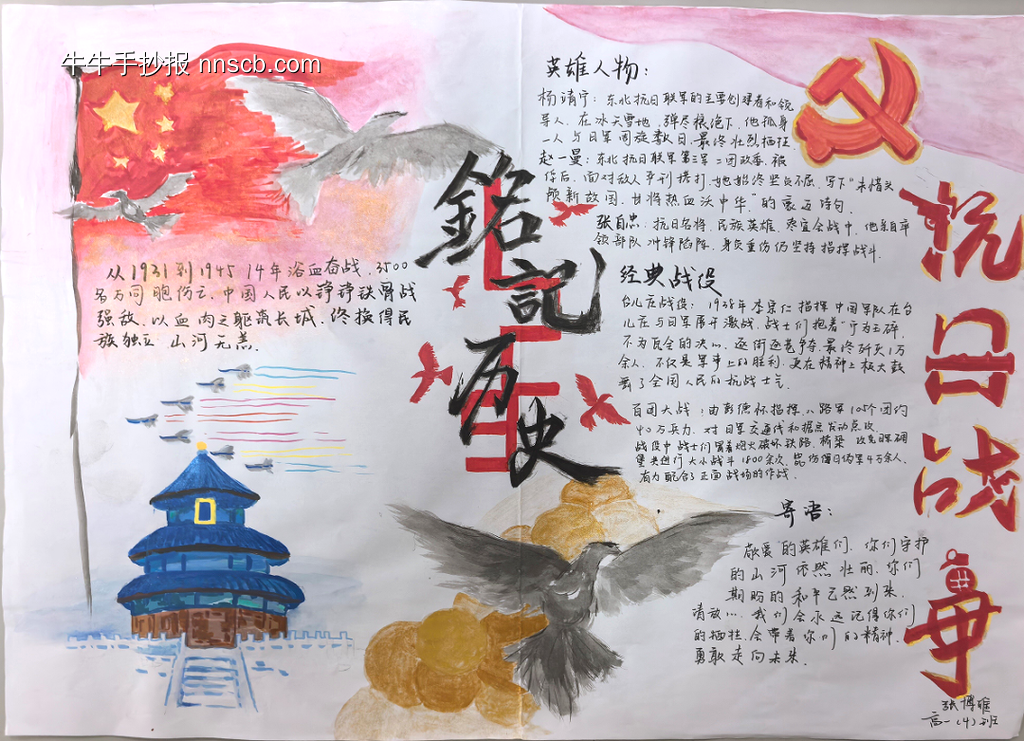 牛牛手抄报 nnscb.com
銘記历史
抗日战争
从1931到1945 14年浴血奋战，3500
多万同胞伤亡，中国人民以铮铮铁骨战
强敌，以血肉之躯筑长城，终换得民
族独立 山河无恙。
英雄人物：
杨靖宇：东北抗日联军的主要创建者和领
导人，在冰天雪地，弹尽粮绝下，他孤身
一人与日军周旋数日，最终壮烈牺牲
赵一曼：东北抗日联军第三军二团政委，被
俘后，面对敌人严刑拷打，她始终坚贞不屈，写下“未惜头
颅新故国，甘将热血沃中华”的豪迈诗句。
张自忠：抗日名将，民族英雄，枣宜会战中，他亲自率
领部队冲锋陷阵，身负重伤仍坚持指挥战斗。
经典战役
台儿庄战役：1938年李宗仁指挥中国军队在台
儿庄与日军展开激战，战士们抱着“宁为玉碎，
不为瓦全的决心，逐街逐巷争夺，最终歼灭1万
余人，不仅是军事上的胜利，更在精神上极大鼓
舞了全国人民的抗战士气。
百团大战：由彭德怀指挥，八路军105个团约
40万兵力，对日军交通线和据点发动总攻，
战役中战士们冒着炮火破坏铁路、桥梁，攻克日军碉
堡共进行大小战斗1800余次，伤俘日伪军4万余人，
有力配合了正面战场的作战。
寄语：
敬爱的英雄们，你们守护
的山河依然壮丽，你们
期盼的和平已然到来，
请放心，我们会永远记得你们
的牺牲，会带着你们的精神，
勇敢走向未来。
张博雅
高一（4）班